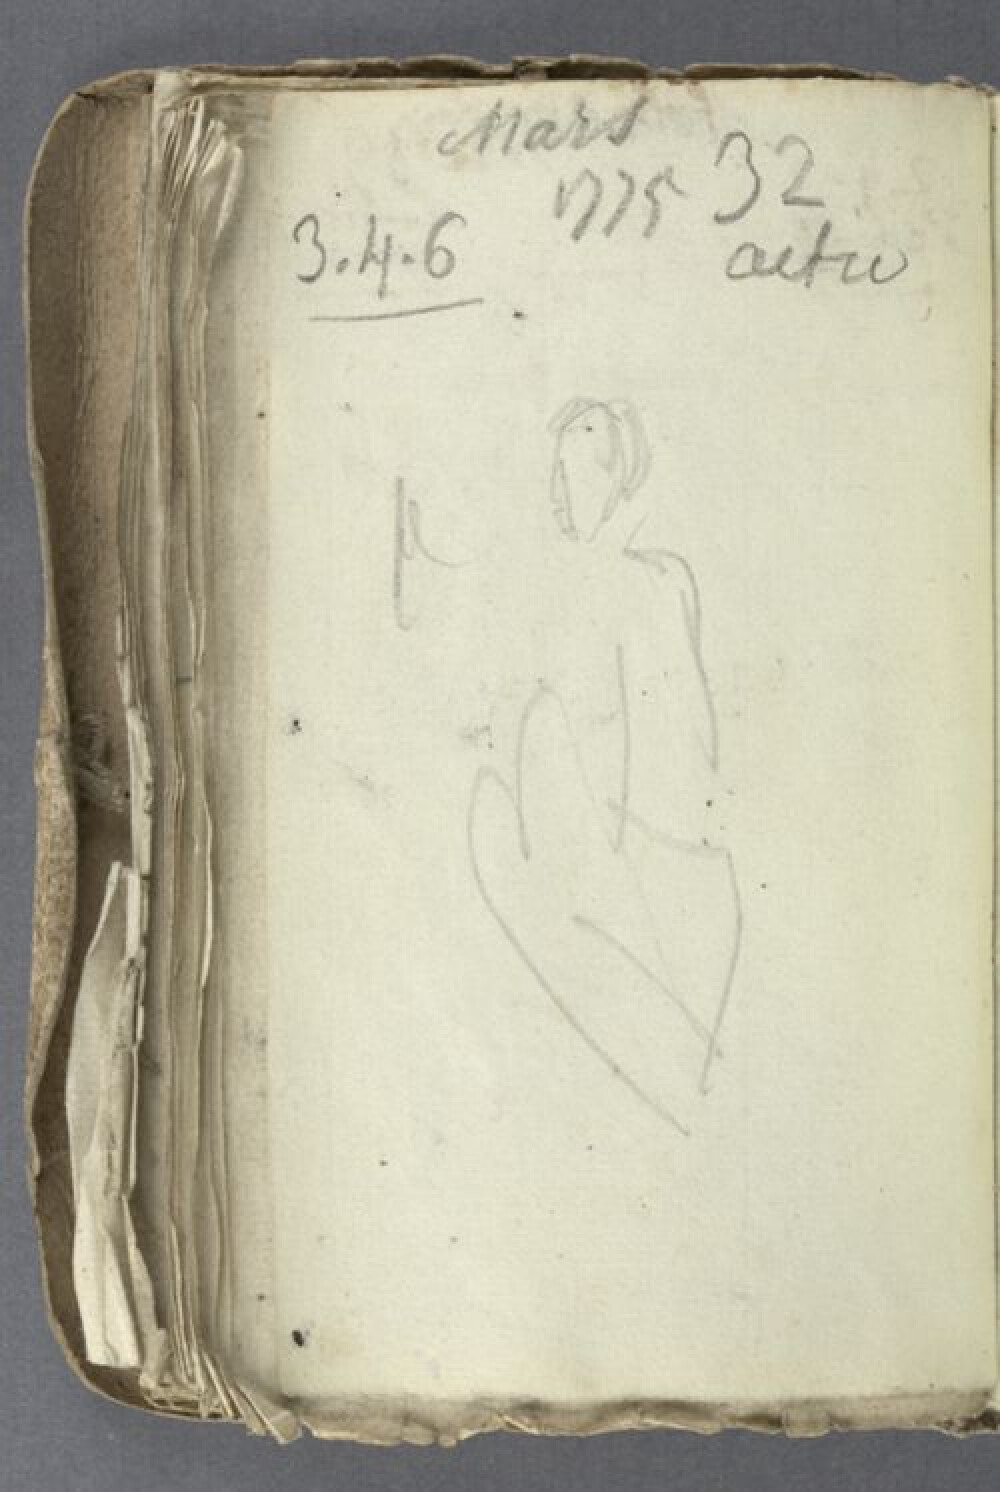 Mars
1775 32
3.4.6 aetu